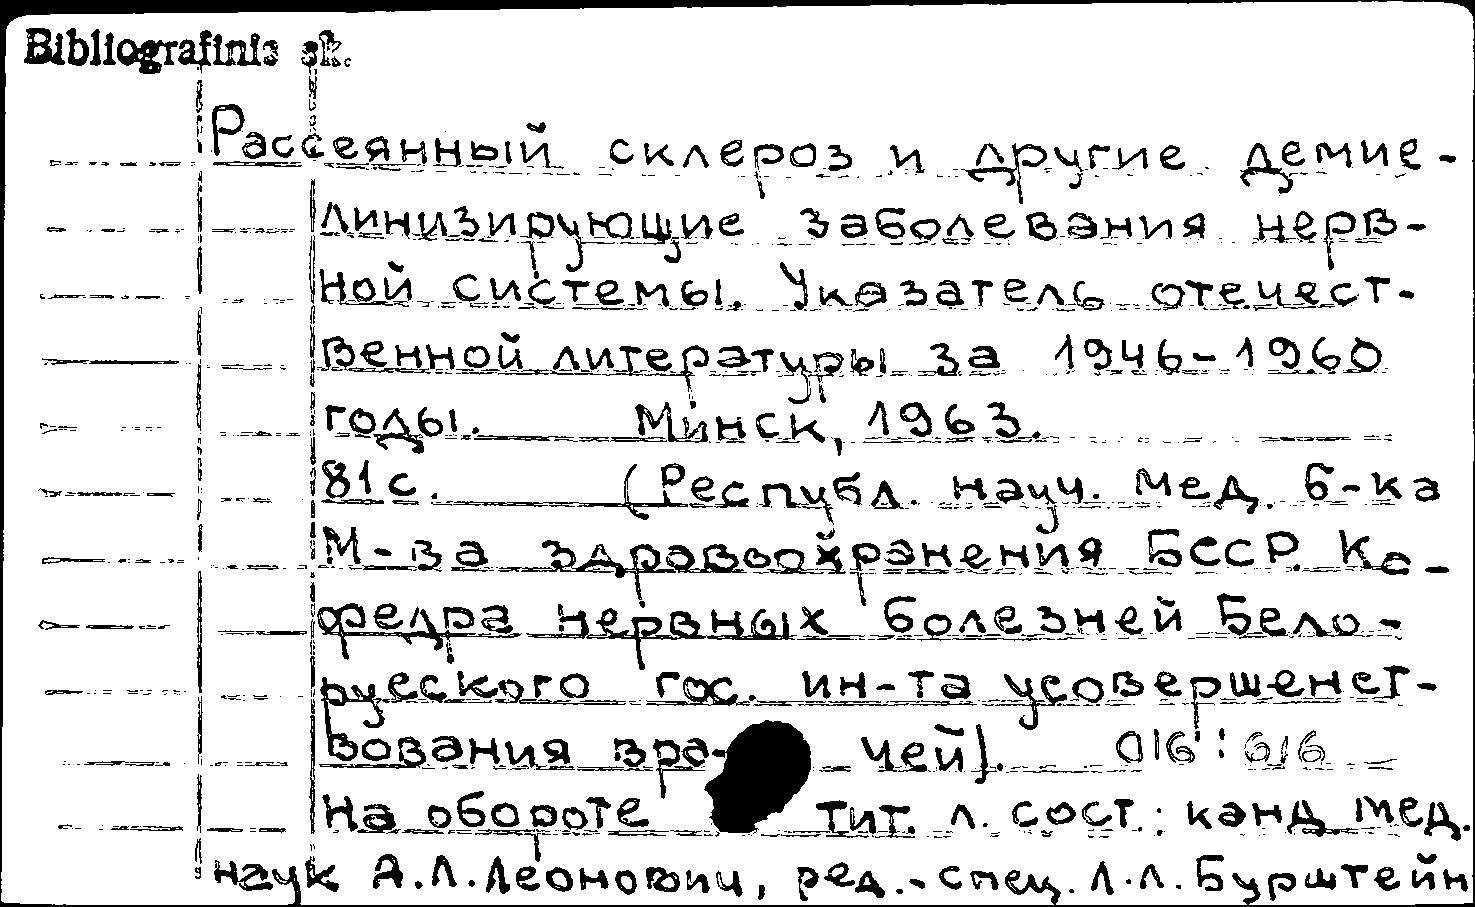 Bibliografinis sk.
Рассеянный склероз и другие демие-
линизирующие заболевания нерв-
ной системы. Указатель отечест-
венной литературы за 1946-1960
годы. Минск, 1963.
81с. (Республ. науч. мед. б-ка
М-ва здравоохранения БССР. Ка-
федра нервных болезней Бело-
руеского гос. ин-та усовершенст-
вования вра- чей). 016:616
На обороте тит. л. сост.: канд. мед.
наук А.Л.Леонович, ред.-спец. Л.Л.Бурштейн